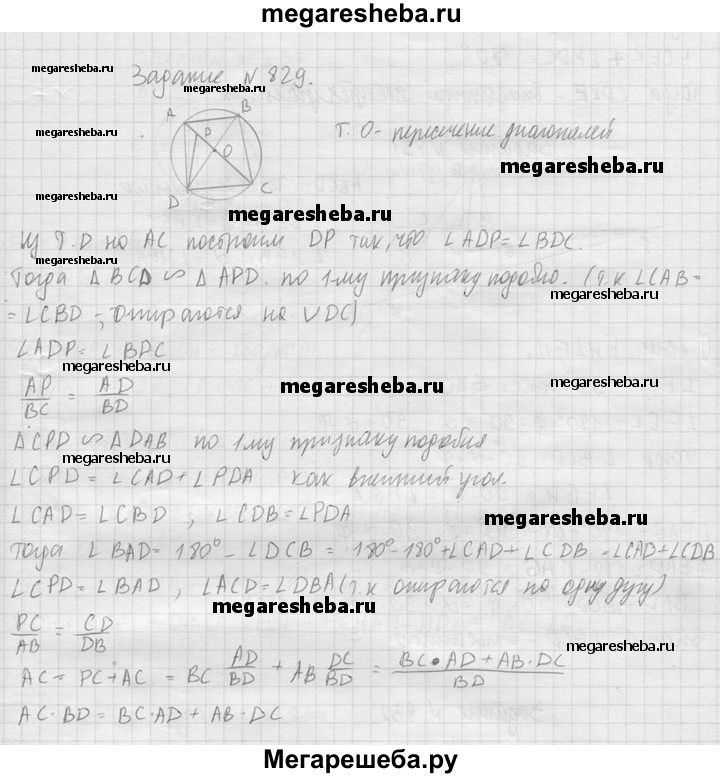 megaresheba.ru
megaresheba.ru
Задание № 829.
megaresheba.ru
A B P O C D
т. О - пересечение диагоналей
megaresheba.ru
megaresheba.ru
megaresheba.ru
Из т. D на AC построим DP так, что ∠ADP = ∠BDC.
Тогда △BCD ∽ △APD. по 1му признаку подобию. (т.к ∠CAB =
megaresheba.ru
= ∠CBD -, опираются на ∪DC)
∠ADP = ∠BDC
megaresheba.ru
AP/BC = AD/BD
megaresheba.ru
megaresheba.ru
△CPD ∽ △DAB по 1му признаку подобия
megaresheba.ru
∠CPD = ∠CAD + ∠PDA как внешний угол.
∠CAD = ∠CBD , ∠CDB = ∠PDA
megaresheba.ru
Тогда ∠BAD = 180° - ∠DCB = 180° - 180° + ∠CAD + ∠CDB = ∠CAD + ∠CDB
∠CPD = ∠BAD , ∠ACD = ∠DBA (т.к опираются на одну дугу)
megaresheba.ru
PC/AB = CD/DB
megaresheba.ru
AC = PC + AC = BC AD/BD + AB DC/BD = BC·AD + AB·DC/BD
AC·BD = BC·AD + AB·DC
megaresheba.ru
Мегарешеба.ру